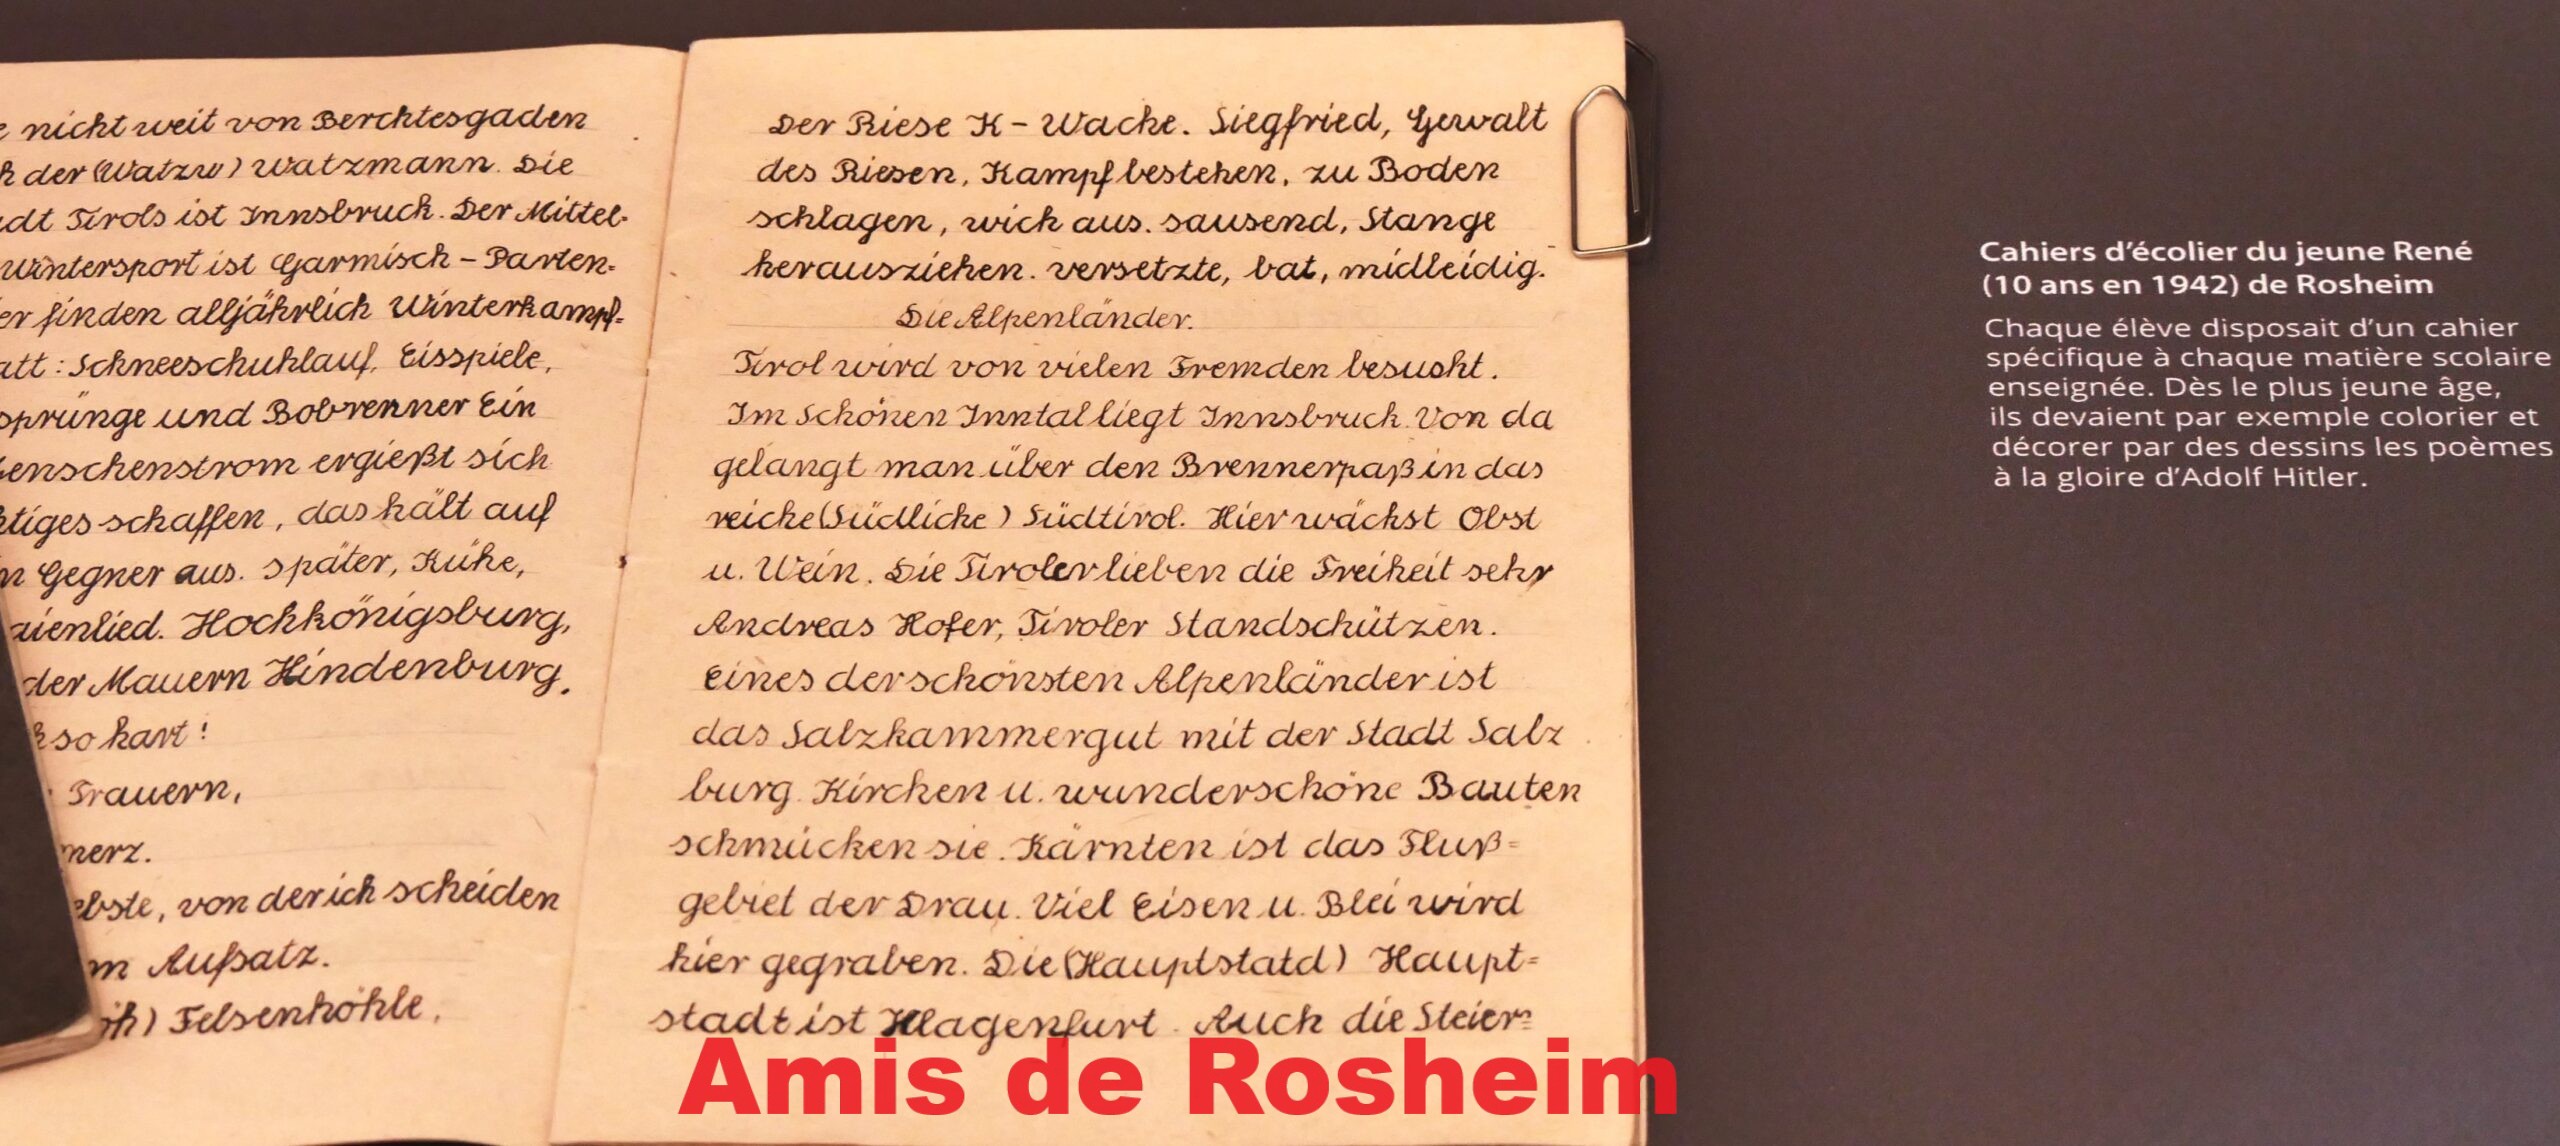 nicht weit von Berchtesgaden
der (Watzw) Watzmann. Die
Tirols ist Innsbruck. Der Mittel-
Wintersport ist Garmisch - Parten-
finden alljährlich Winterkampf-
: Schneeschuhlauf, Eisspiele,
sprünge und Bobrenner Ein
enschenstrom ergießt sich
tiges schaffen, das hält auf
n Gegner aus. später, Kühe,
aienlied. Hochkönigsburg,
der Mauern Hindenburg.
so hart!
Trauern,
merz.
ebste, von der ich scheiden
m Aufsatz.
öh) Felsenhöhle.
Der Riese K - Wache. Siegfried, Gewalt
des Riesen, Kampf bestehen, zu Boden
schlagen, wich aus. sausend, Stange
herausziehen. versetzte, bat, midleidig.
Die Alpenländer.
Tirol wird von vielen Fremden besucht.
Im Schönen Inntal liegt Innsbruck. Von da
gelangt man über den Brennerpaß in das
reiche (Südliche) Südtirol. Hier wächst Obst
u. Wein. Die Tiroler lieben die Freiheit sehr
Andreas Hofer, Tiroler Standschützen.
Eines der schönsten Alpenländer ist
das Salzkammergut mit der Stadt Salz
burg. Kirchen u. wunderschöne Bauten
schmücken sie. Kärnten ist das Fluß=
gebiet der Drau. Viel Eisen u. Blei wird
hier gegraben. Die (Hauptstatd) Haupt=
stadt ist Klagenfurt. Auch die Steier=
Cahiers d'écolier du jeune René
(10 ans en 1942) de Rosheim
Chaque élève disposait d'un cahier
spécifique à chaque matière scolaire
enseignée. Dès le plus jeune âge,
ils devaient par exemple colorier et
décorer par des dessins les poèmes
à la gloire d'Adolf Hitler.
Amis de Rosheim